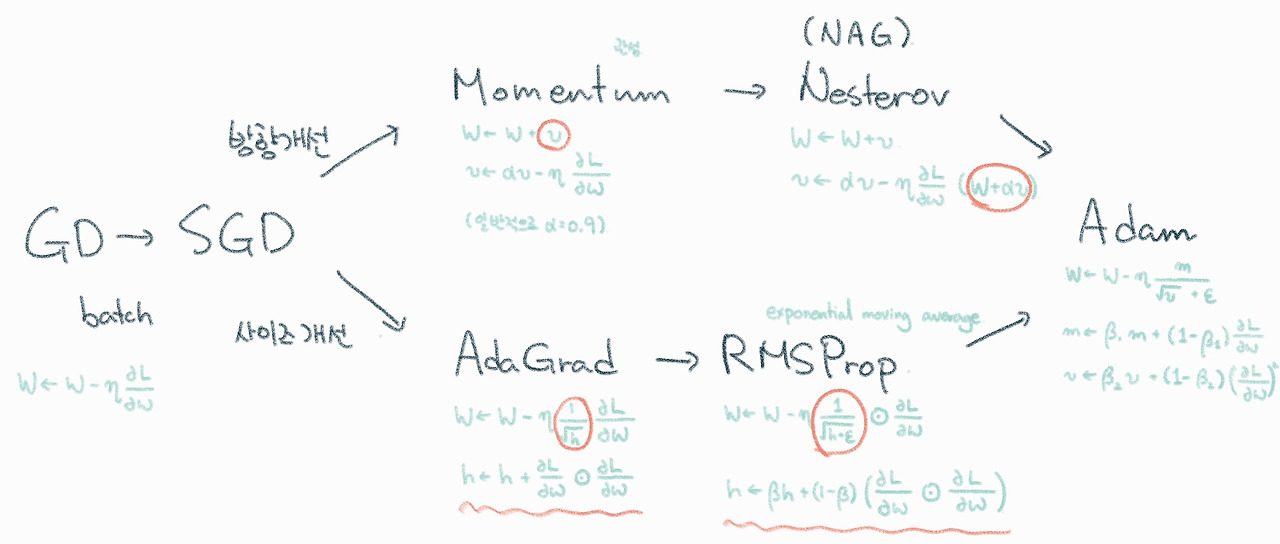 GD → SGD
batch
W ← W - η ∂L/∂W
방향개선
사이즈개선
관성
Momentum →
W ← W + v
v ← αv - η ∂L/∂W
(일반적으로 α=0.9)
(NAG)
Nesterov
W ← W+v
v ← αv - η ∂L/∂W (W+αv)
AdaGrad →
W ← W - η 1/√h ∂L/∂W
h ← h + ∂L/∂W ⊙ ∂L/∂W
exponential moving average
RMSProp
W ← W - η 1/√h+ε ⊙ ∂L/∂W
h ← βh + (1-β) (∂L/∂W ⊙ ∂L/∂W)
Adam
W ← W - η m/√v + ε
m ← β₁ m + (1-β₁) ∂L/∂W
v ← β₂ v + (1-β₂) (∂L/∂W)²